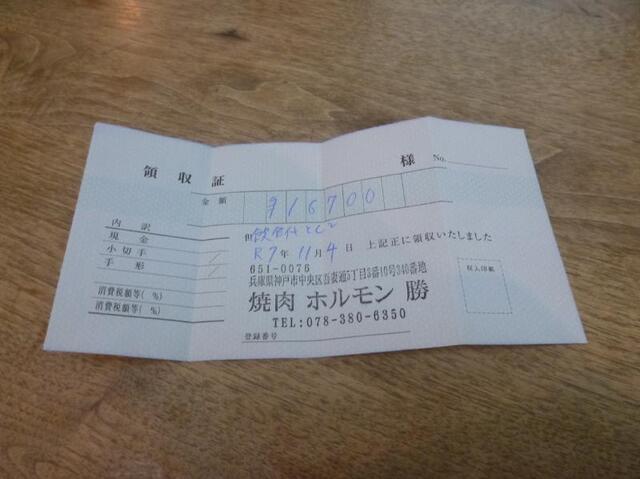 領収証 様 No.
金額 ¥16700
内訳 但 飲食代として
現金 R7年11月4日 上記正に領収いたしました
小切手
手形
651-0076
兵庫県神戸市中央区吾妻通5丁目3番10号340番地
消費税額等( %) 焼肉 ホルモン 勝 収入印紙
消費税額等( %) TEL:078-380-6350
登録番号